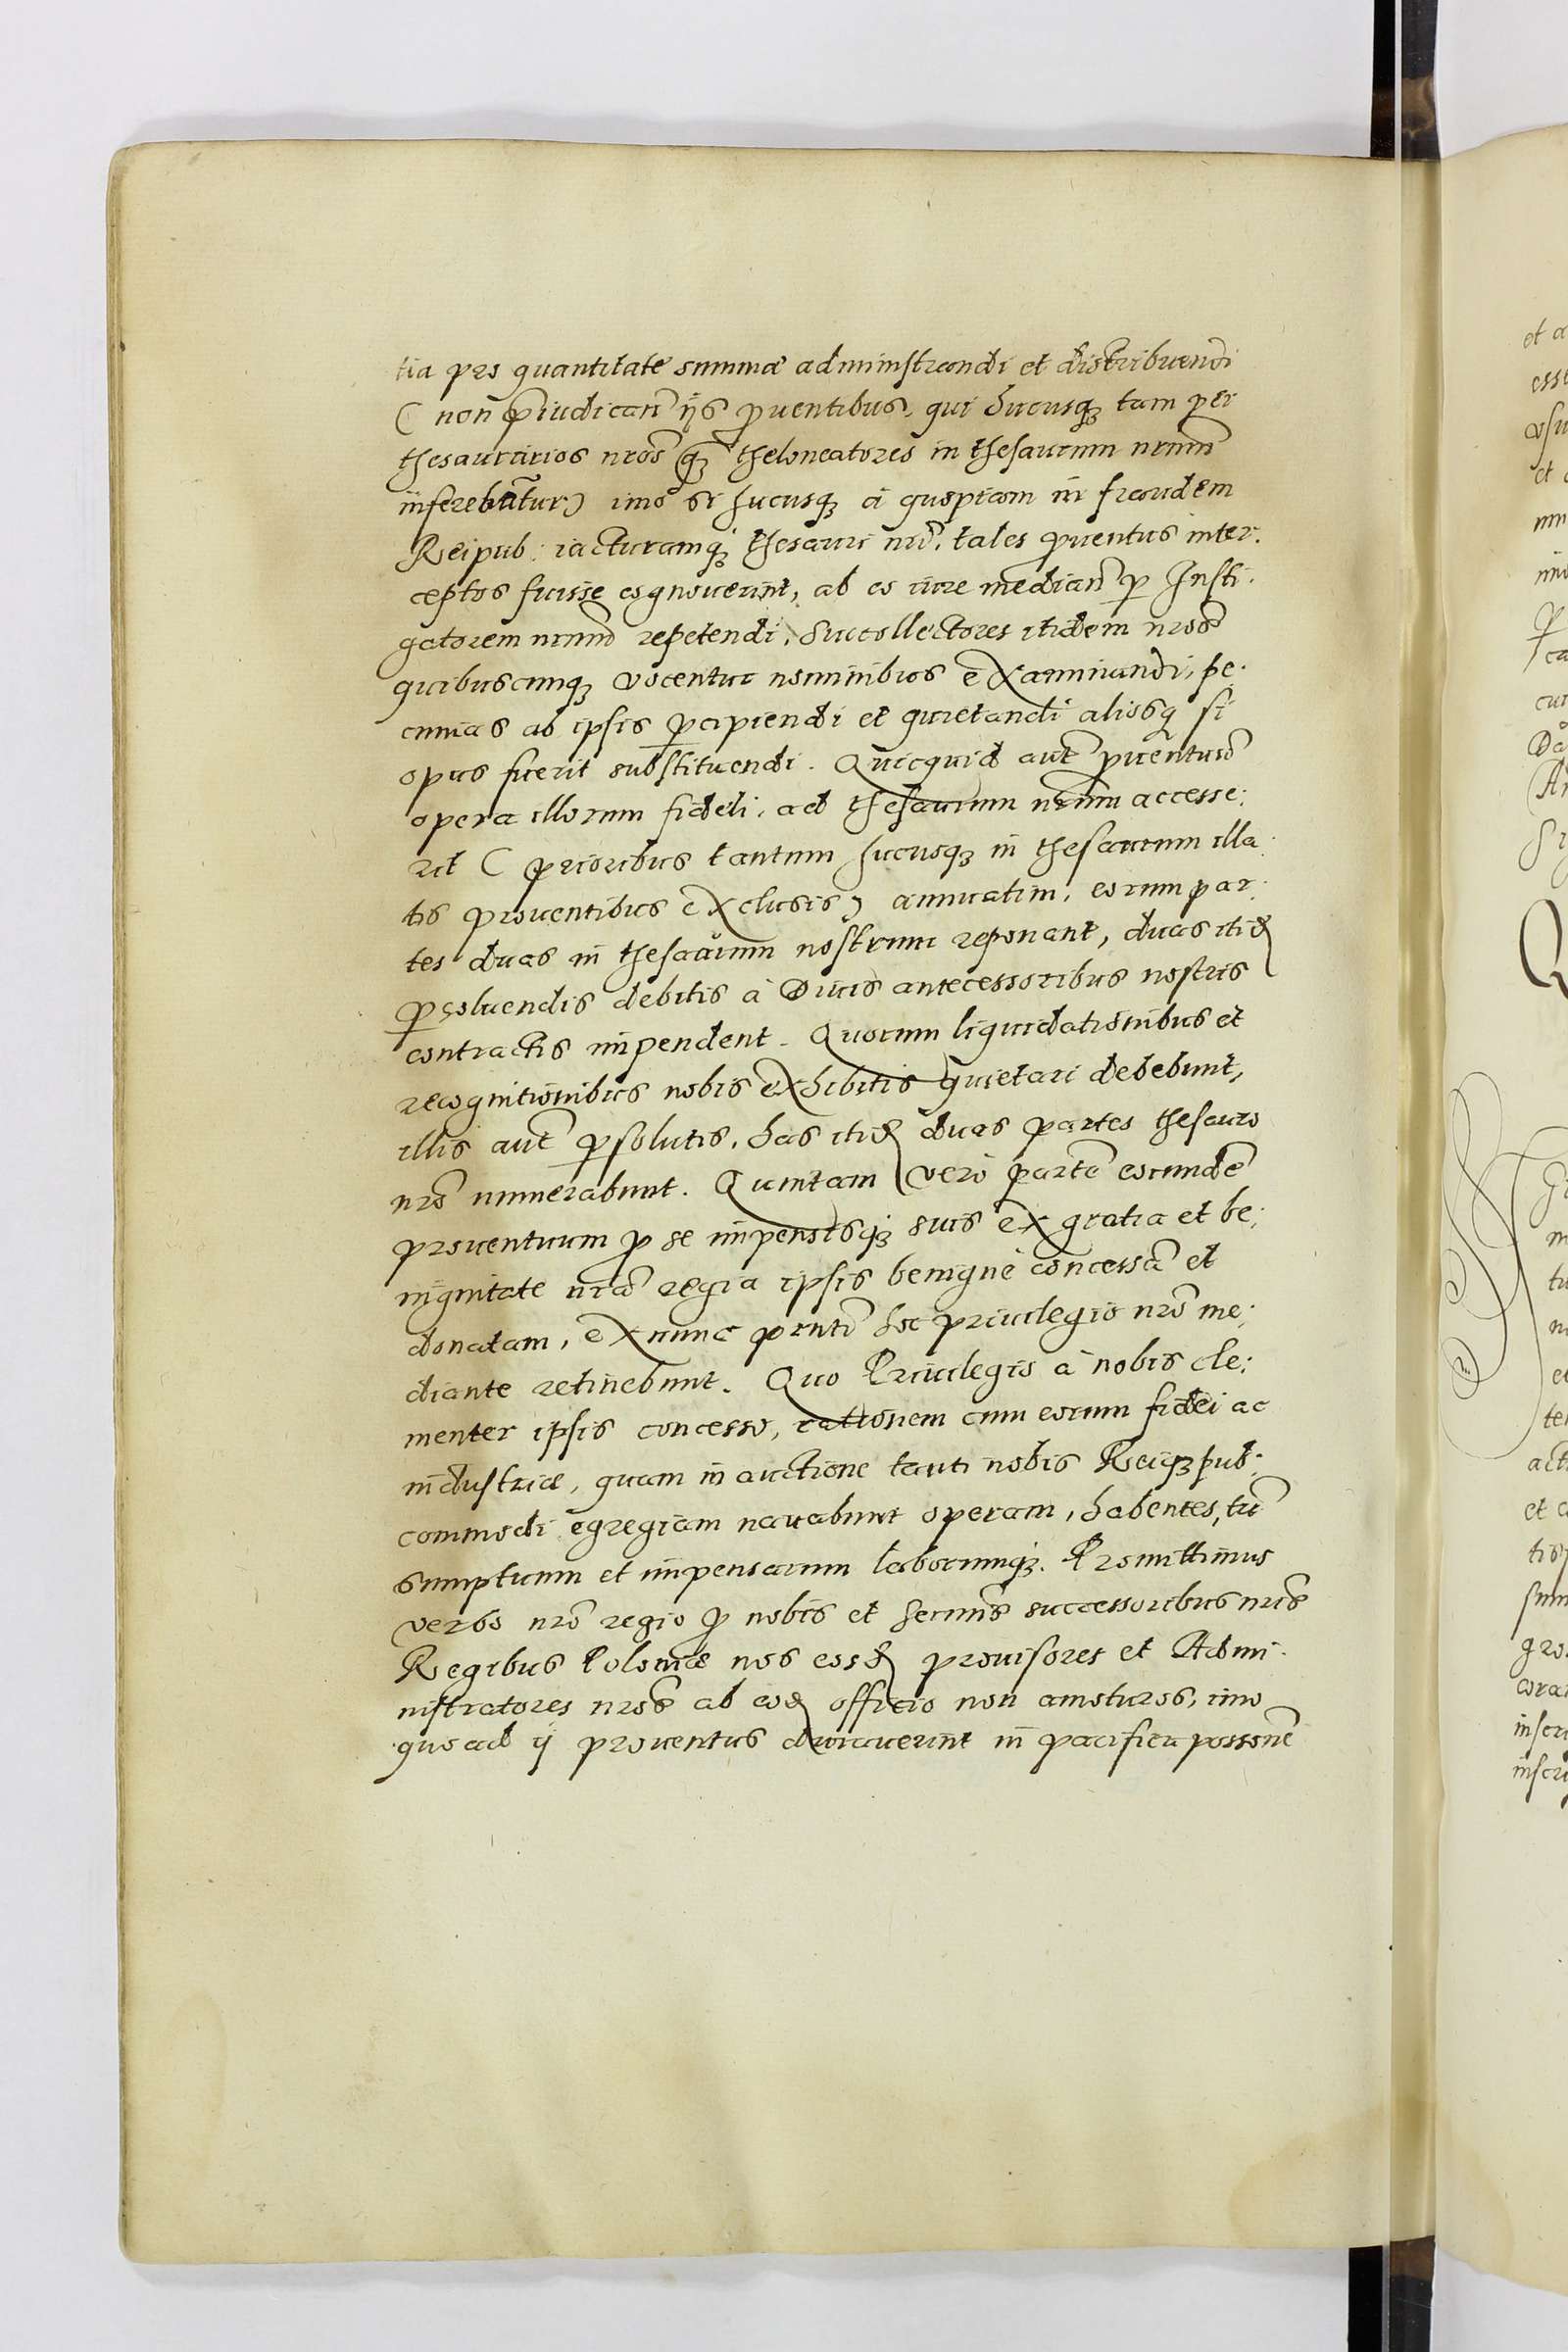 tia pro quantitate summæ administrandi et distribuendi
( non p̱iudicañ ijs ꝓuentibus, qui hucusq₃ tam per
thesaurarios nr̃os q̃₃ theloneatores in thesaurum nr̃um
inferebãtur) imo si hucusq₃ à quopiam in fraudem
Reipub: iacturamq₃ thesauri nr̃i, tales ꝓuentus inter:
ceptos fuisse cognouerint, ab eo iure mediañ ꝑ Insti:
gatorem nr̃um repetendi, Succollectores itidem nr̃os
quibuscunq₃ vocentur nominibus examinandi, pe:
cunias ab ipsis ꝑcipiendi et quietandi aliosq₃ si
opus fuerit substituendi. Quicquid aut̃ ꝓuentuũ
opera illorum fideli, ad thesaurum nr̃um accesse:
rit ( prioribus tantum hucusq₃ in thesaurum illa:
tis prouentibus exclusis) annuatim, eorum par:
tes duas in thesaurum nostrum reponant, duas itid̃
ꝑsoluendis debitis à Diuis antecessoribus nostris
contractis impendent. Quorum liquidationibus et
recognitionibus nobis exhibitis quietari debebunt,
illis aut̃ ꝑsolutis, has itid̃ duas partes thesauro
nr̃o numerabunt. Quintam vero partẽ eorundẽ
prouentuum ꝓ se impensisq₃ suis ex gratia et be:
nignitate nr̃a regia ipsis benignè concessã et
donatam, ex nunc pr̃nti hoc priuilegio nr̃o me:
diante retinebunt. Quo Priuilegio à nobis cle:
menter ipsis concesso, rationem cum eorum fidei ac
industriæ, quam in auctione tanti nobis Reiq₃ pub:
commodi egregiam nauabunt operam, habentes, tũ
sumptuum et impensarum laborumq₃. Promittimus
verbo nr̃o regio ꝓ nobis et Serenis̃ successoribus nr̃is
Regibus Poloniæ nos eosd̃ prouisores et Admi:
nistratores nr̃os ab eod̃ officio non amoturos, imo
quoad ij prouentus durauerint in pacifica possonẽ